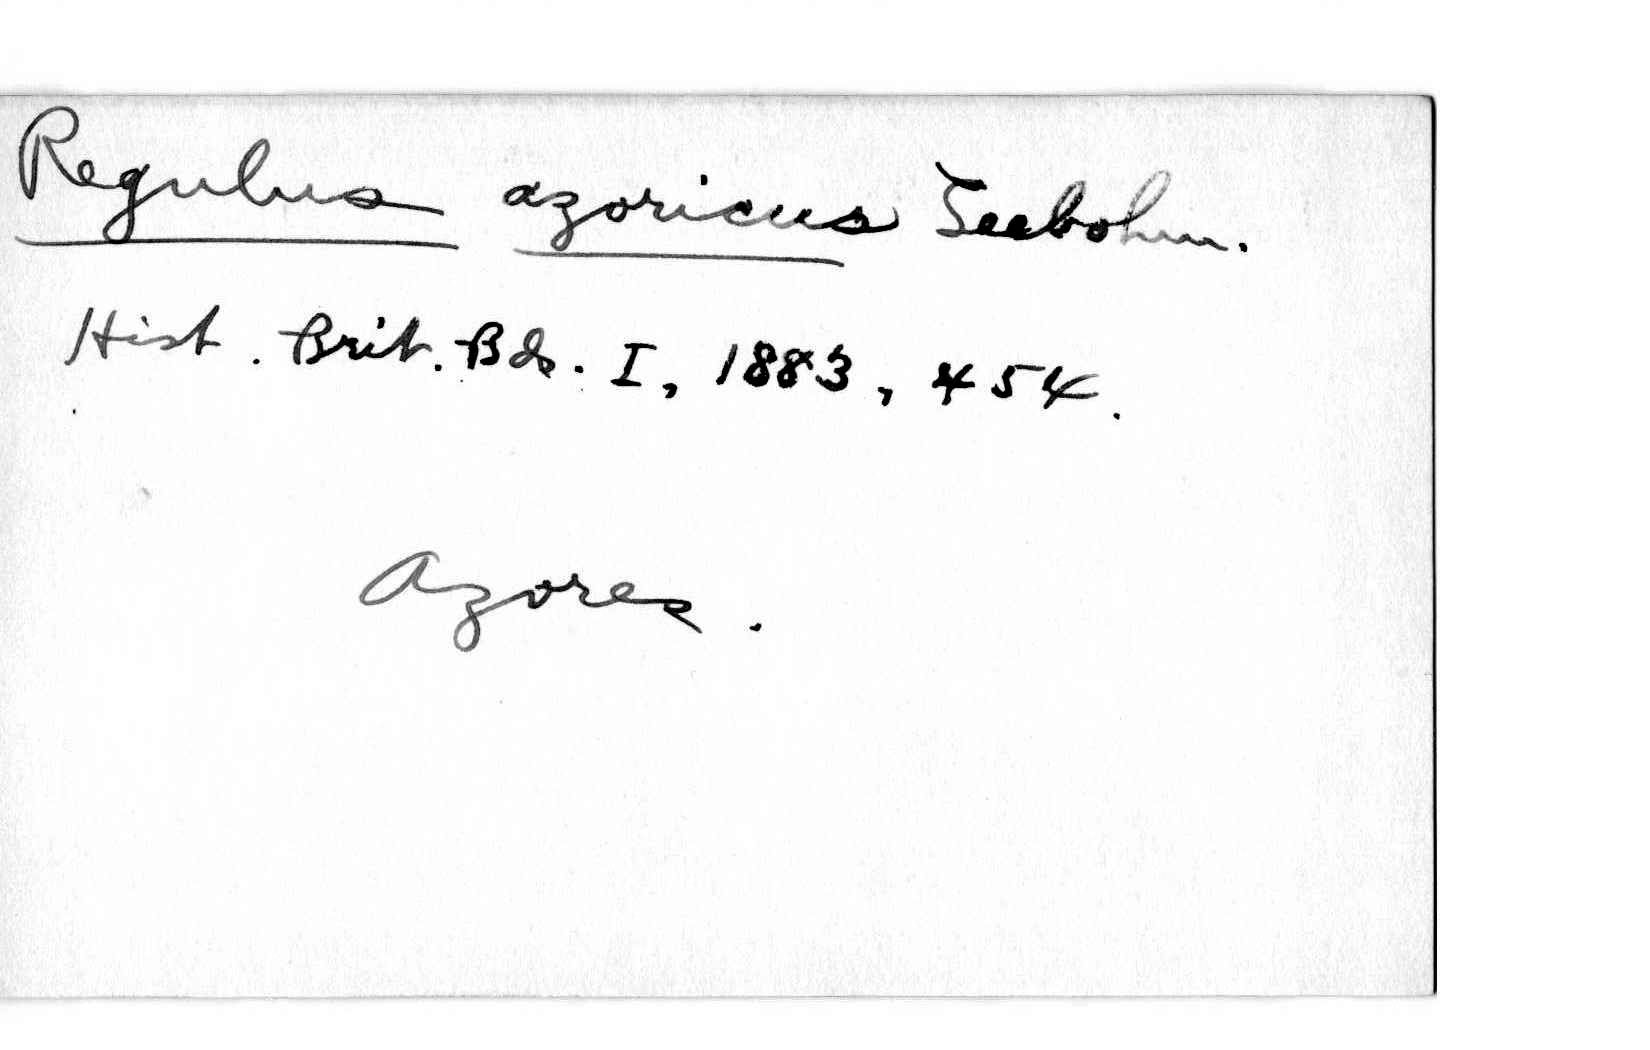 Regulus azoricus Seebohm.
Hist. Brit. Bds. I, 1883, 454.
Azores.